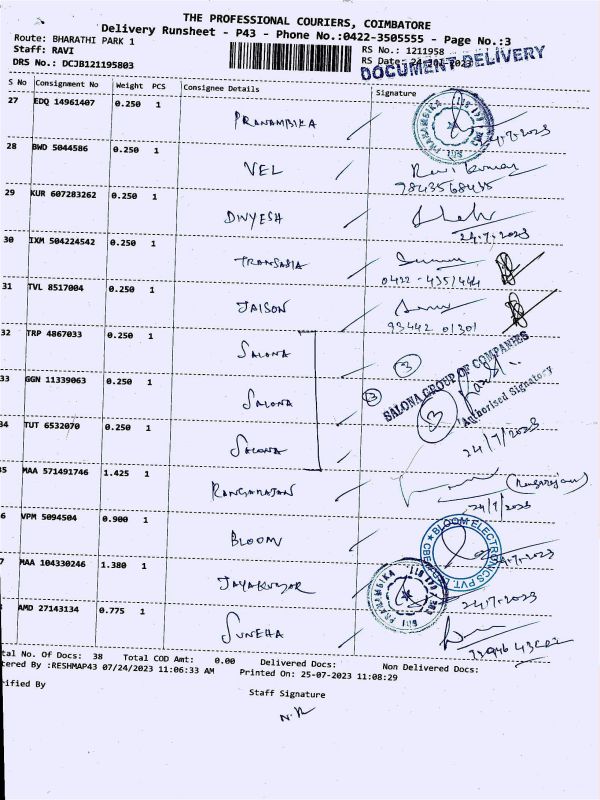 THE PROFESSIONAL COURIERS, COIMBATORE
Delivery Runsheet - P43 - Phone No.:0422-3505555 - Page No.:3
Route: BHARATHI PARK 1
RS No.: 1211958
Staff: RAVI
RS Date: 24-Jul-2023
DRS No.: DCJB121195803
DOCUMENT DELIVERY
S No Consignment No Weight PCS Consignee Details Signature
27 EDQ 14961407 0.250 1 PRANAMBIKA
28 BWD 5044586 0.250 1 VEL Ravi kumar
9843568435
29 KUR 607283262 0.250 1 DIVYESH
24.7.2023
30 IXM 504224542 0.250 1 TRANSASIA
0422-4351444
31 TVL 8517004 0.250 1 JAISON
93442 01301
32 TRP 4867033 0.250 1 SALONA 3
33 GGN 11339063 0.250 1 SALONA 3
SALONA GROUP OF COMPANIES
Authorised Signatory
34 TUT 6532070 0.250 1 SALONA 3
24/7/2023
35 MAA 571491746 1.425 1 RANGARAJAN (Rangarajan)
24/7/2023
6 VPM 5094504 0.900 1 BLOOM
BLOOM ELECTRONICS PVT.
CBE
7 MAA 104330246 1.380 1 JAYAKUMAR
PRANAMBIKA
24.7.2023
AMD 27143134 0.775 1 SUNEHA
tal No. Of Docs: 38 Total COD Amt: 0.00 Delivered Docs: Non Delivered Docs:
tered By :RESHMAP43 07/24/2023 11:06:33 AM Printed On: 25-07-2023 11:08:29
rified By
Staff Signature
N.R